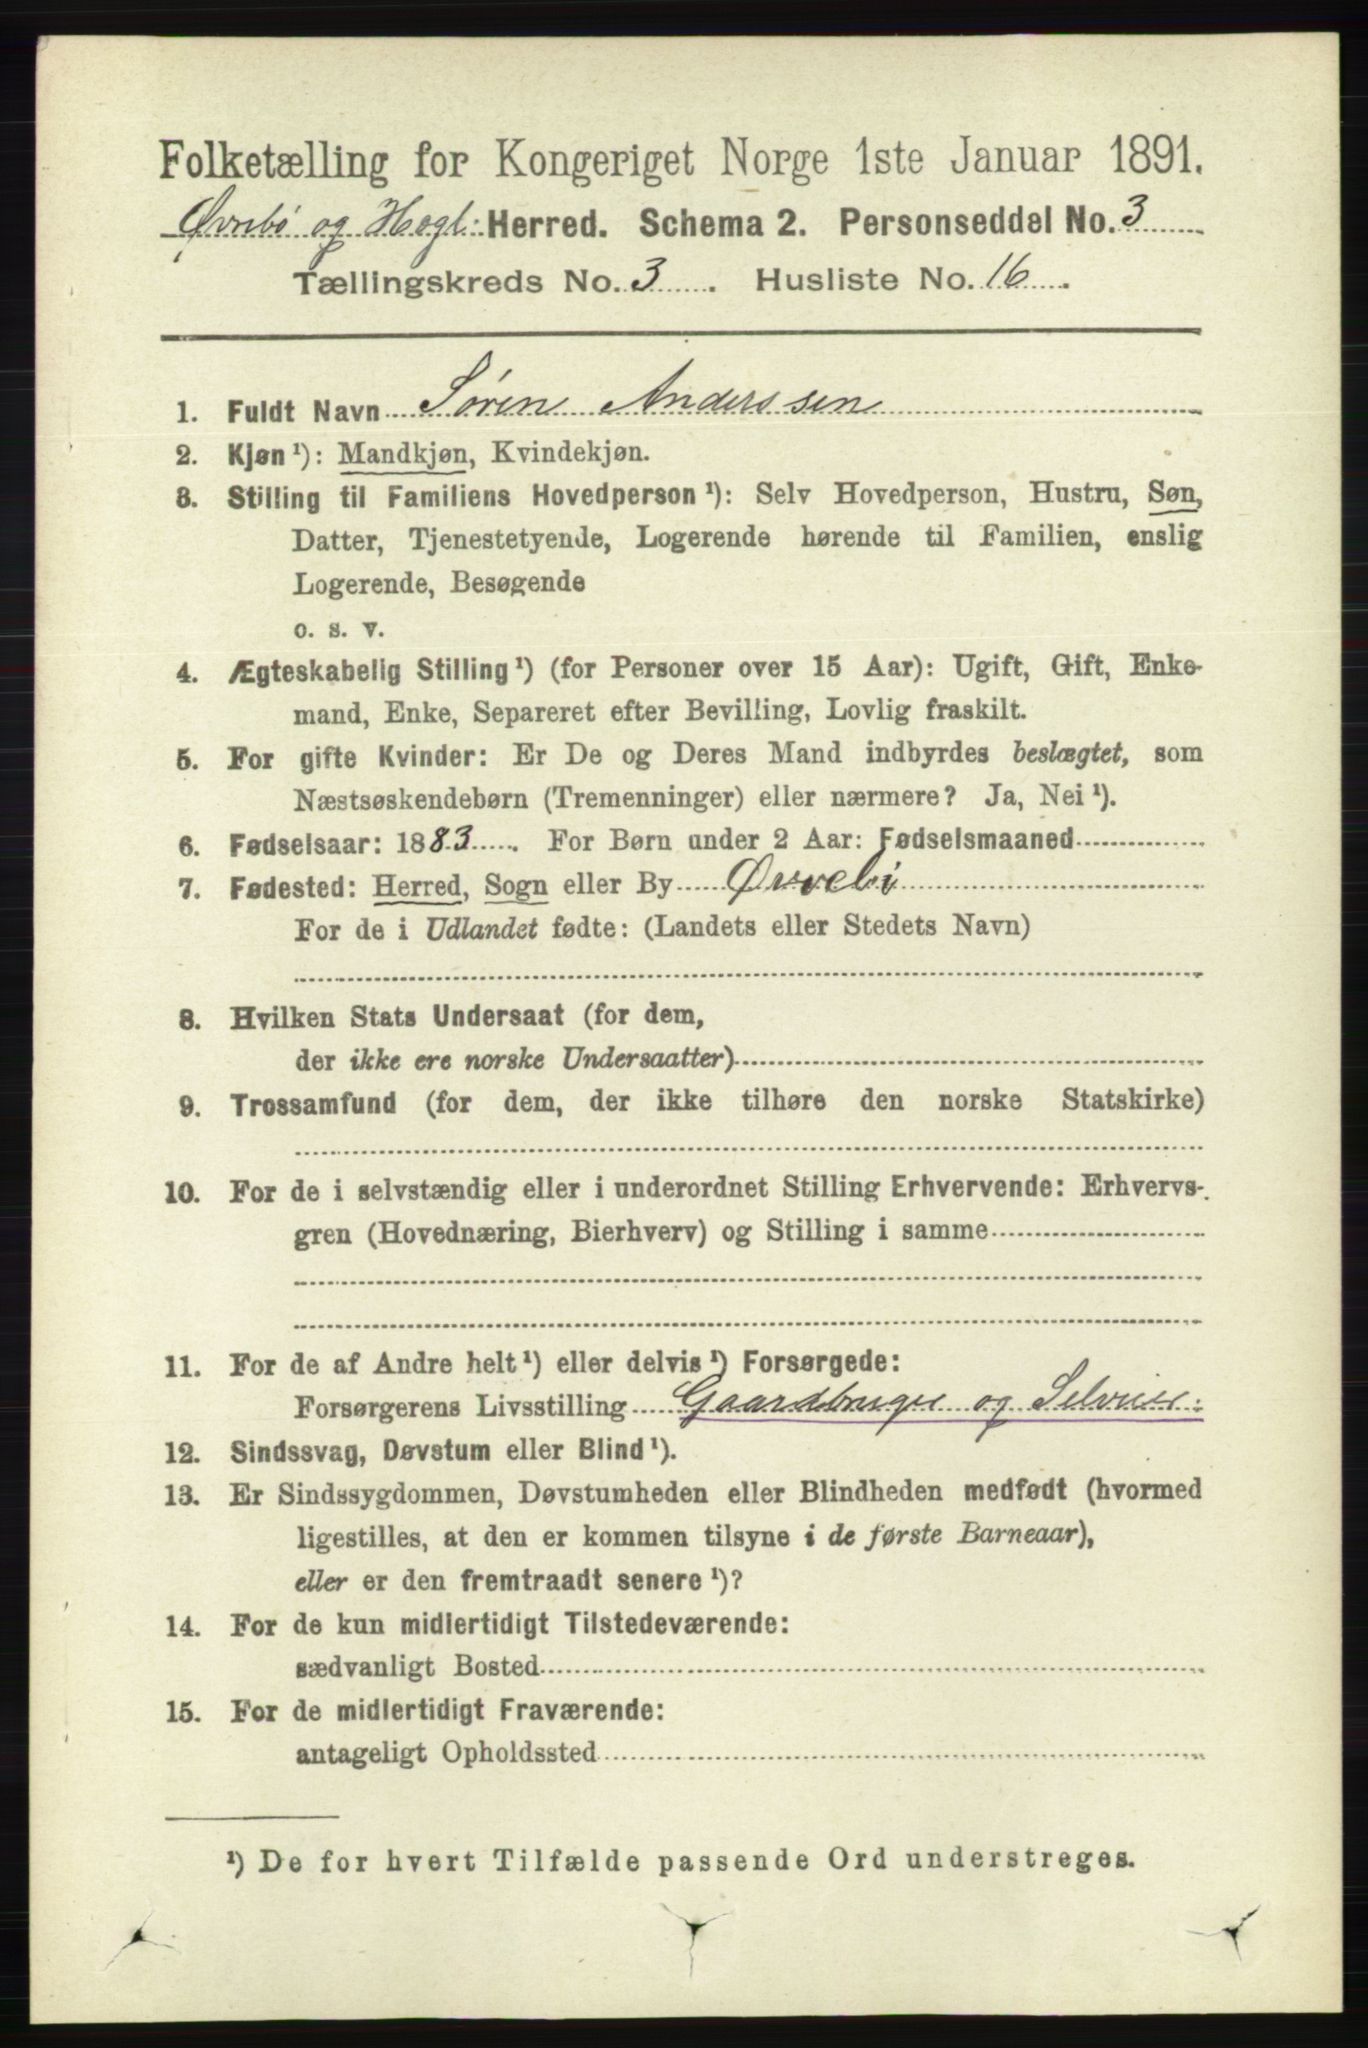 Folketælling for Kongeriget Norge 1ste Januar 1891.
Øvrebø og Hægl: Herred. Schema 2. Personseddel No. 3
Tællingskreds No. 3. Husliste No. 16.
1. Fuldt Navn Søren Anderssen
2. Kjøn ¹): Mandkjøn, Kvindekjøn.
3. Stilling til Familiens Hovedperson ¹): Selv Hovedperson, Hustru, Søn,
Datter, Tjenestetyende, Logerende hørende til Familien, enslig
Logerende, Besøgende
o. s. v.
4. Ægteskabelig Stilling ¹) (for Personer over 15 Aar): Ugift, Gift, Enke-
mand, Enke, Separeret efter Bevilling, Lovlig fraskilt.
5. For gifte Kvinder: Er De og Deres Mand indbyrdes beslægtet, som
Næstsøskendebørn (Tremenninger) eller nærmere? Ja, Nei ¹).
6. Fødselsaar: 1883. For Børn under 2 Aar: Fødselsmaaned
7. Fødested: Herred, Sogn eller By Øvrebø
For de i Udlandet fødte: (Landets eller Stedets Navn)
8. Hvilken Stats Undersaat (for dem,
der ikke ere norske Undersaatter)
9. Trossamfund (for dem, der ikke tilhøre den norske Statskirke)
10. For de i selvstændig eller i underordnet Stilling Erhvervende: Erhvervs-
gren (Hovednæring, Bierhverv) og Stilling i samme
11. For de af Andre helt ¹) eller delvis ¹) Forsørgede:
Forsørgerens Livsstilling Gaardbruger og Selveier.
12. Sindssvag, Døvstum eller Blind ¹).
13. Er Sindssygdommen, Døvstumheden eller Blindheden medfødt (hvormed
ligestilles, at den er kommen tilsyne i de første Barneaar),
eller er den fremtraadt senere ¹)?
14. For de kun midlertidigt Tilstedeværende:
sædvanligt Bosted
15. For de midlertidigt Fraværende:
antageligt Opholdssted
¹) De for hvert Tilfælde passende Ord understreges.